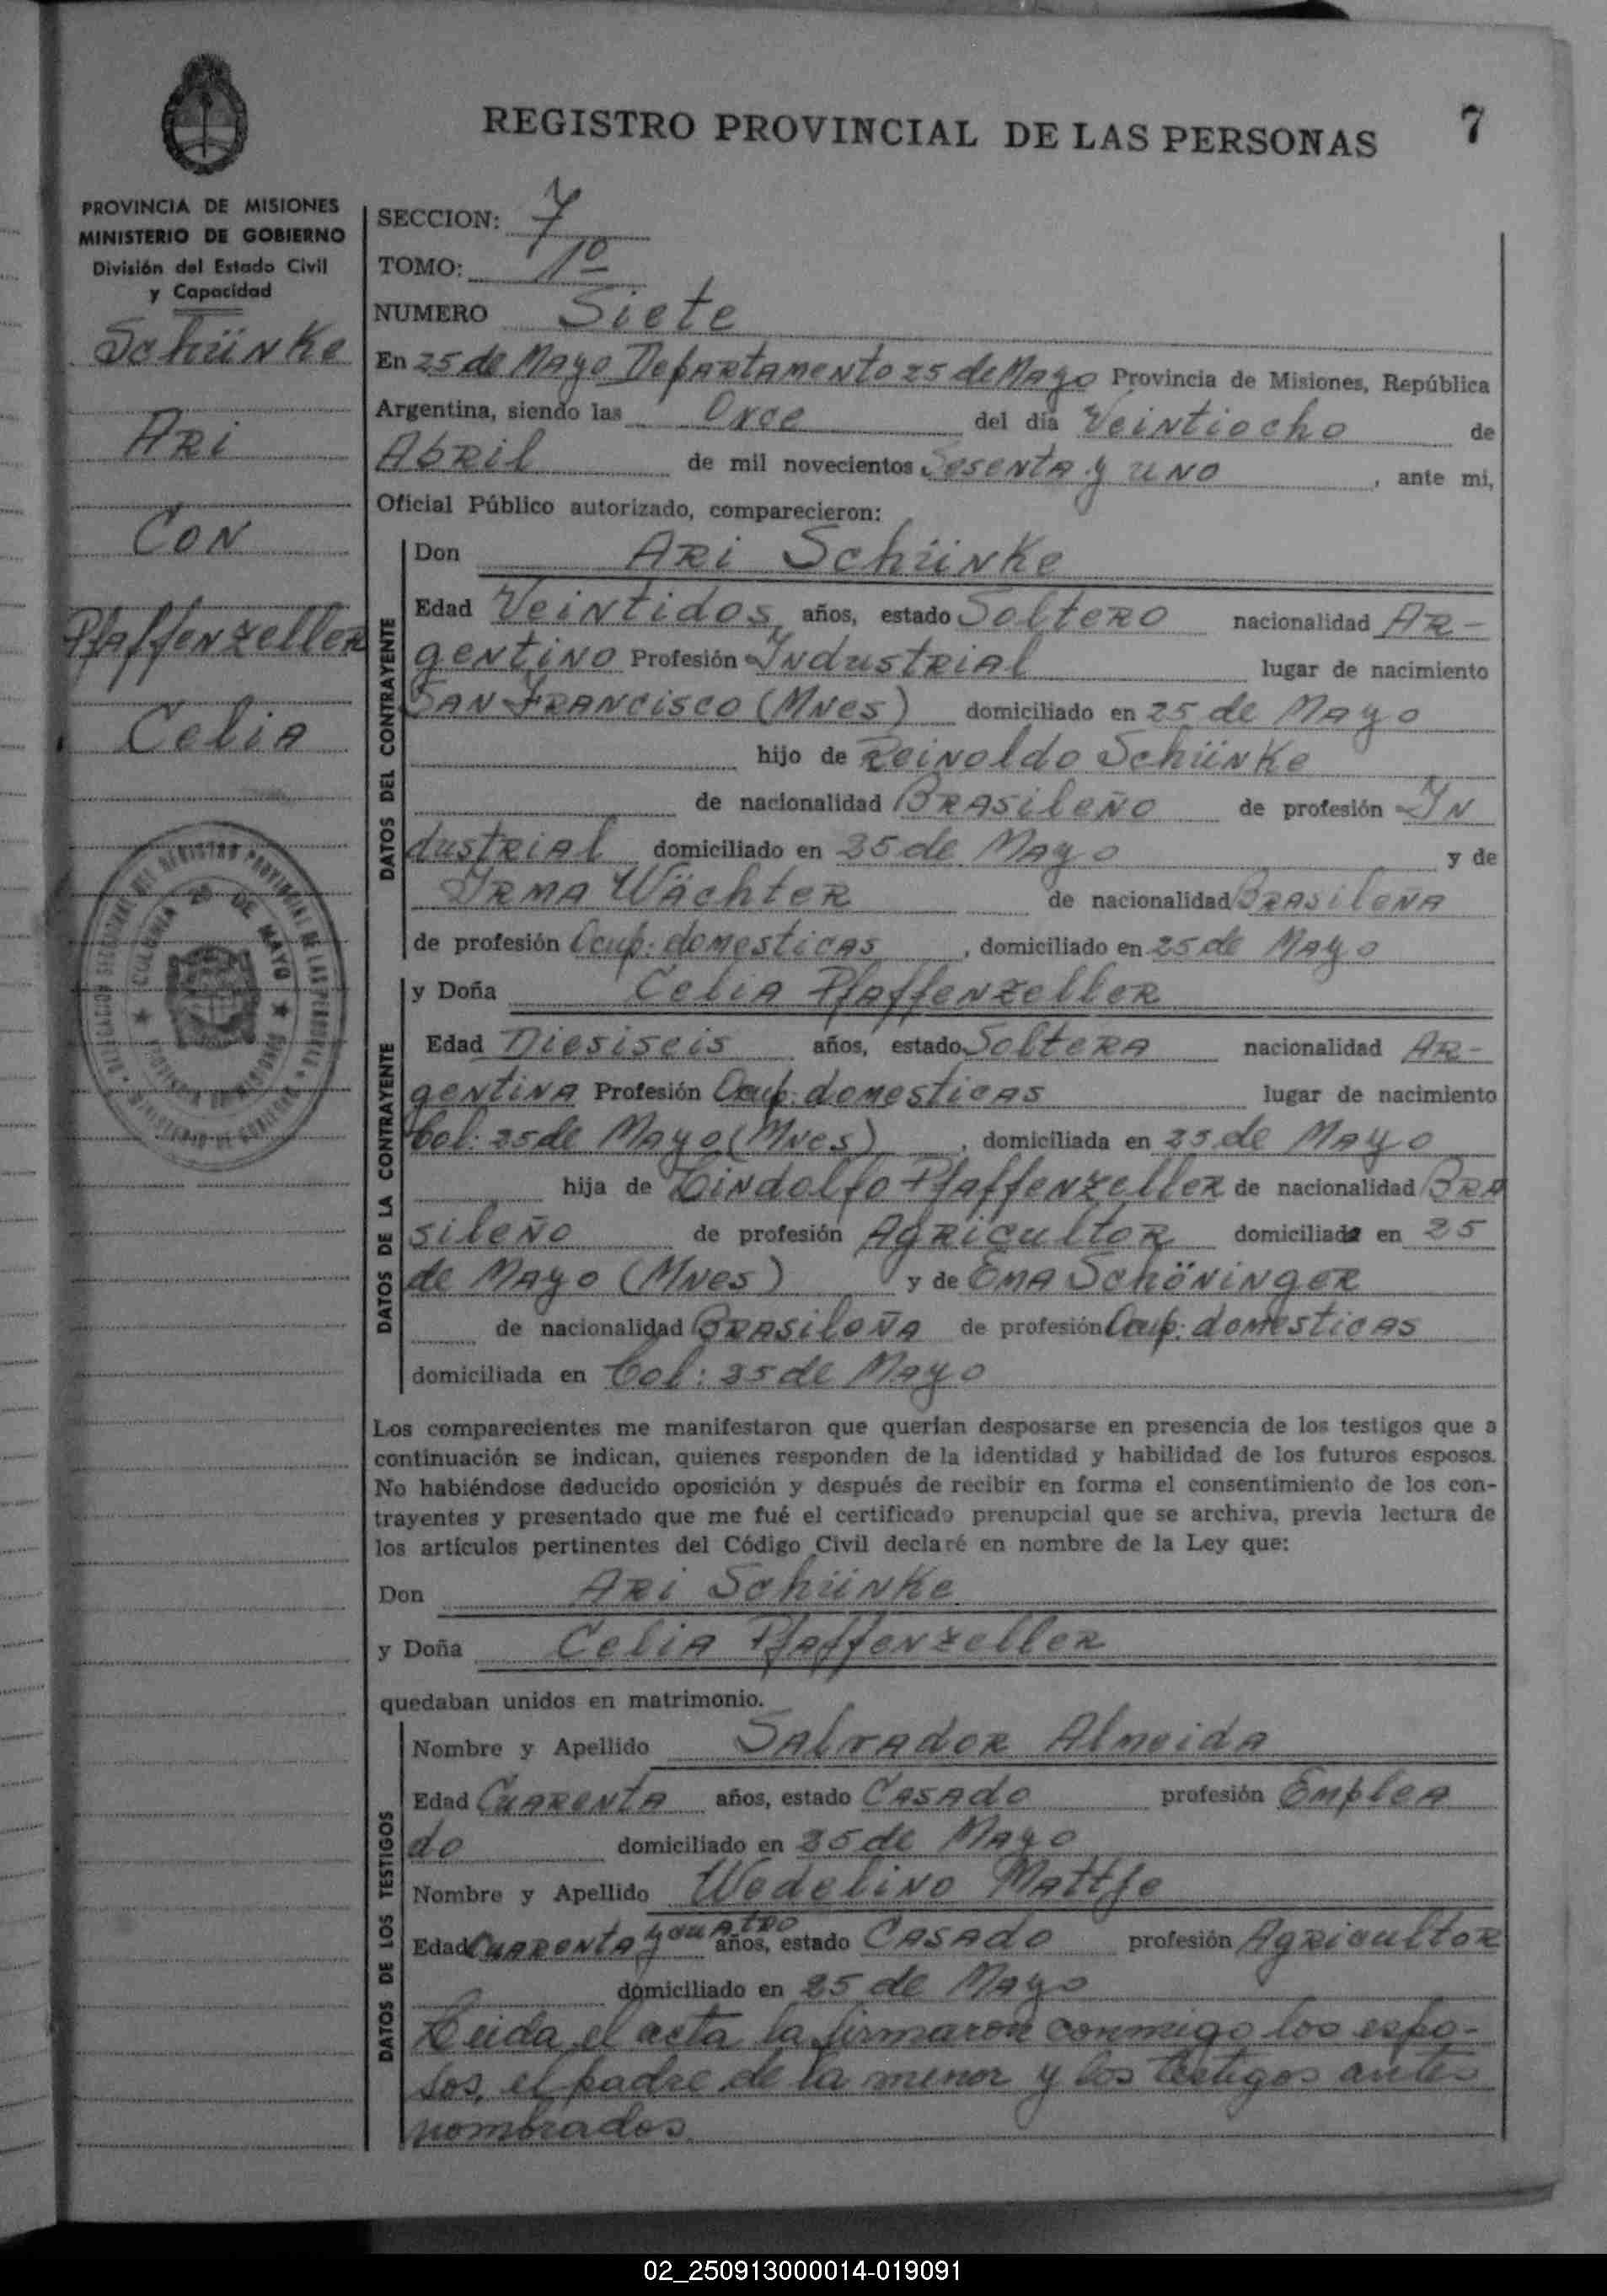 REGISTRO PROVINCIAL DE LAS PERSONAS
7
PROVINCIA DE MISIONES
MINISTERIO DE GOBIERNO
División del Estado Civil
y Capacidad
Schünke
Ari
Con
Pfaffenzeller
Celia
COLONIA 25 DE MAYO
SECCION: 7
TOMO: 1º
NUMERO Siete
En 25 de Mayo Departamento 25 de Mayo Provincia de Misiones, República
Argentina, siendo las Once del día Veintiocho de
Abril de mil novecientos Sesenta y uno, ante mi,
Oficial Público autorizado, comparecieron:
DATOS DEL CONTRAYENTE
Don Ari Schünke
Edad Veintidos años, estado Soltero nacionalidad Ar-
gentino Profesión Industrial lugar de nacimiento
San Francisco (Mnes) domiciliado en 25 de Mayo
hijo de Reinoldo Schünke
de nacionalidad Brasileño de profesión In
dustrial domiciliado en 25 de Mayo y de
Irma Wächter de nacionalidad Brasileña
de profesión Ocup. domesticas, domiciliado en 25 de Mayo
DATOS DE LA CONTRAYENTE
y Doña Celia Pfaffenzeller
Edad Diesiseis años, estado Soltera nacionalidad Ar-
gentina Profesión Ocup. domesticas lugar de nacimiento
Col: 25 de Mayo (Mnes), domiciliada en 25 de Mayo
hija de Lindolfo Pfaffenzeller de nacionalidad Bra
sileño de profesión Agricultor domiciliado en 25
de Mayo (Mnes) y de Ema Schöninger
de nacionalidad Brasileña de profesión Ocup. domesticas
domiciliada en Col: 25 de Mayo
Los comparecientes me manifestaron que querían desposarse en presencia de los testigos que a
continuación se indican, quienes responden de la identidad y habilidad de los futuros esposos.
No habiéndose deducido oposición y después de recibir en forma el consentimiento de los con-
trayentes y presentado que me fué el certificado prenupcial que se archiva, previa lectura de
los artículos pertinentes del Código Civil declaré en nombre de la Ley que:
Don Ari Schünke
y Doña Celia Pfaffenzeller
quedaban unidos en matrimonio.
DATOS DE LOS TESTIGOS
Nombre y Apellido Salvador Almeida
Edad Cuarenta años, estado Casado profesión Emplea
do domiciliado en 25 de Mayo
Nombre y Apellido Wedelino Mattje
Edad Cuarenta y cuatro años, estado Casado profesión Agricultor
domiciliado en 25 de Mayo
Leida el acta la firmaron conmigo los espo-
sos, el padre de la menor y los testigos antes
nombrados
02_250913000014-019091